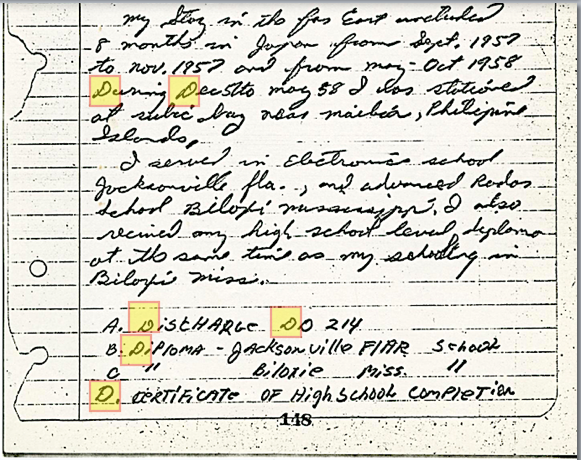 my Stay in the far East included
8 months in Japan from Sept. 1957
to nov. 1957 and from may - Oct 1958
During Dec 57 to may 58 I was stationed
at subic bay near manila, Philipine
Islands,
I served in Electronics school
Jacksonville fla., and advanced Radar
School Biloxi mississippi. I also
recived my high school level diploma
at the same time as my schooling in
Biloxi miss.
A. DiscHARge DD 214
B. DiPlomA - JAcksonville FlAR School
C " Biloxie Miss. "
D. CERTiFicATe OF High School COMPleTion
148